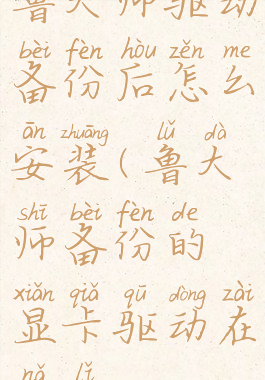 鲁大师驱动
bèi fèn hòu zěn me
备份后怎么
ān zhuāng lǔ dà
安装(鲁大
shī bèi fèn de
师备份的
xiǎn qiǎ qū dòng zài
显卡驱动在
nǎ lǐ